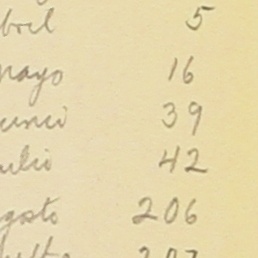 bril 5
mayo 16
unio 39
ulio 42
agosto 206